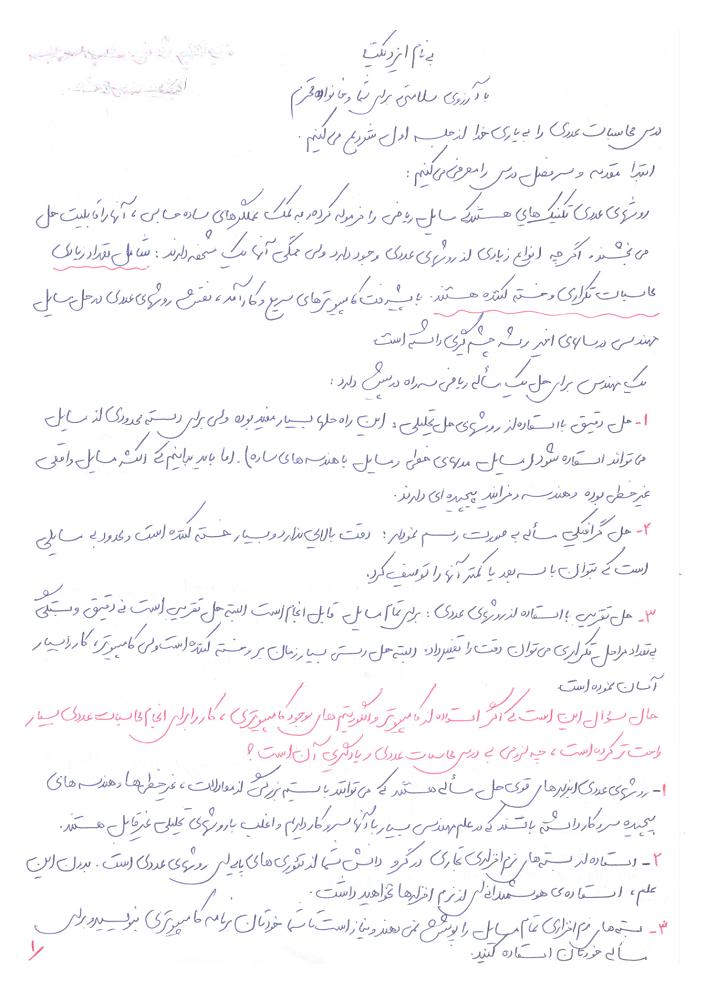 به نام ایزد یکتا
با آرزوی سلامتی برای شما و خانواده محترم
درس محاسبات عددی را به یاری خدا از جلسه اول شروع می‌کنیم.
ابتدا مقدمه و سرفصل درس را معرفی می‌کنیم:
روشهای عددی تکنیک‌هایی هستند که مسایل ریاضی را فرموله کرده، به کمک عملگرهای ساده حسابی، آنها را قابلیت حل
می‌بخشند. اگرچه انواع زیادی از روشهای عددی وجود دارد ولی همگی آنها یک مشخصه دارند: شامل تعداد زیادی
محاسبات تکراری و خسته کننده هستند. با پیشرفت کامپیوترهای سریع و کارآمد، نقش روشهای عددی در حل مسایل
مهندسی در سالهای اخیر رشد چشم گیری داشته است.
یک مهندس برای حل یک مسأله ریاضی سه راه در پیش دارد:
۱- حل دقیق با استفاده از روشهای حل تحلیلی: این راه حلها بسیار مفید بوده ولی برای دسته محدودی از مسایل
می‌تواند استفاده شود (مسایل مدلهای خطی و مسایل با هندسه‌های ساده). اما باید بدانیم که اکثر مسایل واقعی
غیر خطی بوده و هندسه و فرآیند پیچیده‌ای دارند.
۲- حل گرافیکی مسأله به صورت رسم نمودار: دقت بالایی ندارد و بسیار خسته کننده است و محدود به مسایلی
است که بتوان با سه بعد یا کمتر آنها را توصیف کرد.
۳- حل تقریبی با استفاده از روشهای عددی: برای تمام مسایل قابل انجام است البته حل تقریبی است نه دقیق و بستگی
به تعداد مراحل تکراری می‌توان دقت را تغییر داد. البته حل دستی بسیار زمان بر و خسته کننده است ولی کامپیوتر، کار را بسیار
آسان نموده است.
حال سؤال این است که اگر استفاده از کامپیوتر و الگوریتم‌های موجود کامپیوتری، کار را برای انجام محاسبات عددی بسیار
راحت‌تر کرده است، چه لزومی به درس محاسبات عددی و یادگیری آن است؟
۱- روشهای عددی ابزارهای قوی حل مسأله هستند که می‌توانند با سیستم بزرگی از معادلات، غیر خطی‌ها و هندسه‌های
پیچیده سر و کار داشته باشند که در علم مهندسی بسیار با آنها سر و کار داریم و اغلب با روشهای تحلیلی غیر قابل حل هستند.
۲- استفاده از بسته‌های نرم افزاری تجاری در گرو دانش شما از تئوری‌های پایه‌ای روشهای عددی است. بدون این
علم، استفاده‌ی هوشمندانه‌ای از نرم افزارها نخواهید داشت.
۳- بسته‌های نرم افزاری تمام مسایل را پوشش نمی‌دهند و نیاز است تا شما خودتان برنامه کامپیوتری بنویسید و برای
مسأله خودتان استفاده کنید.
۱